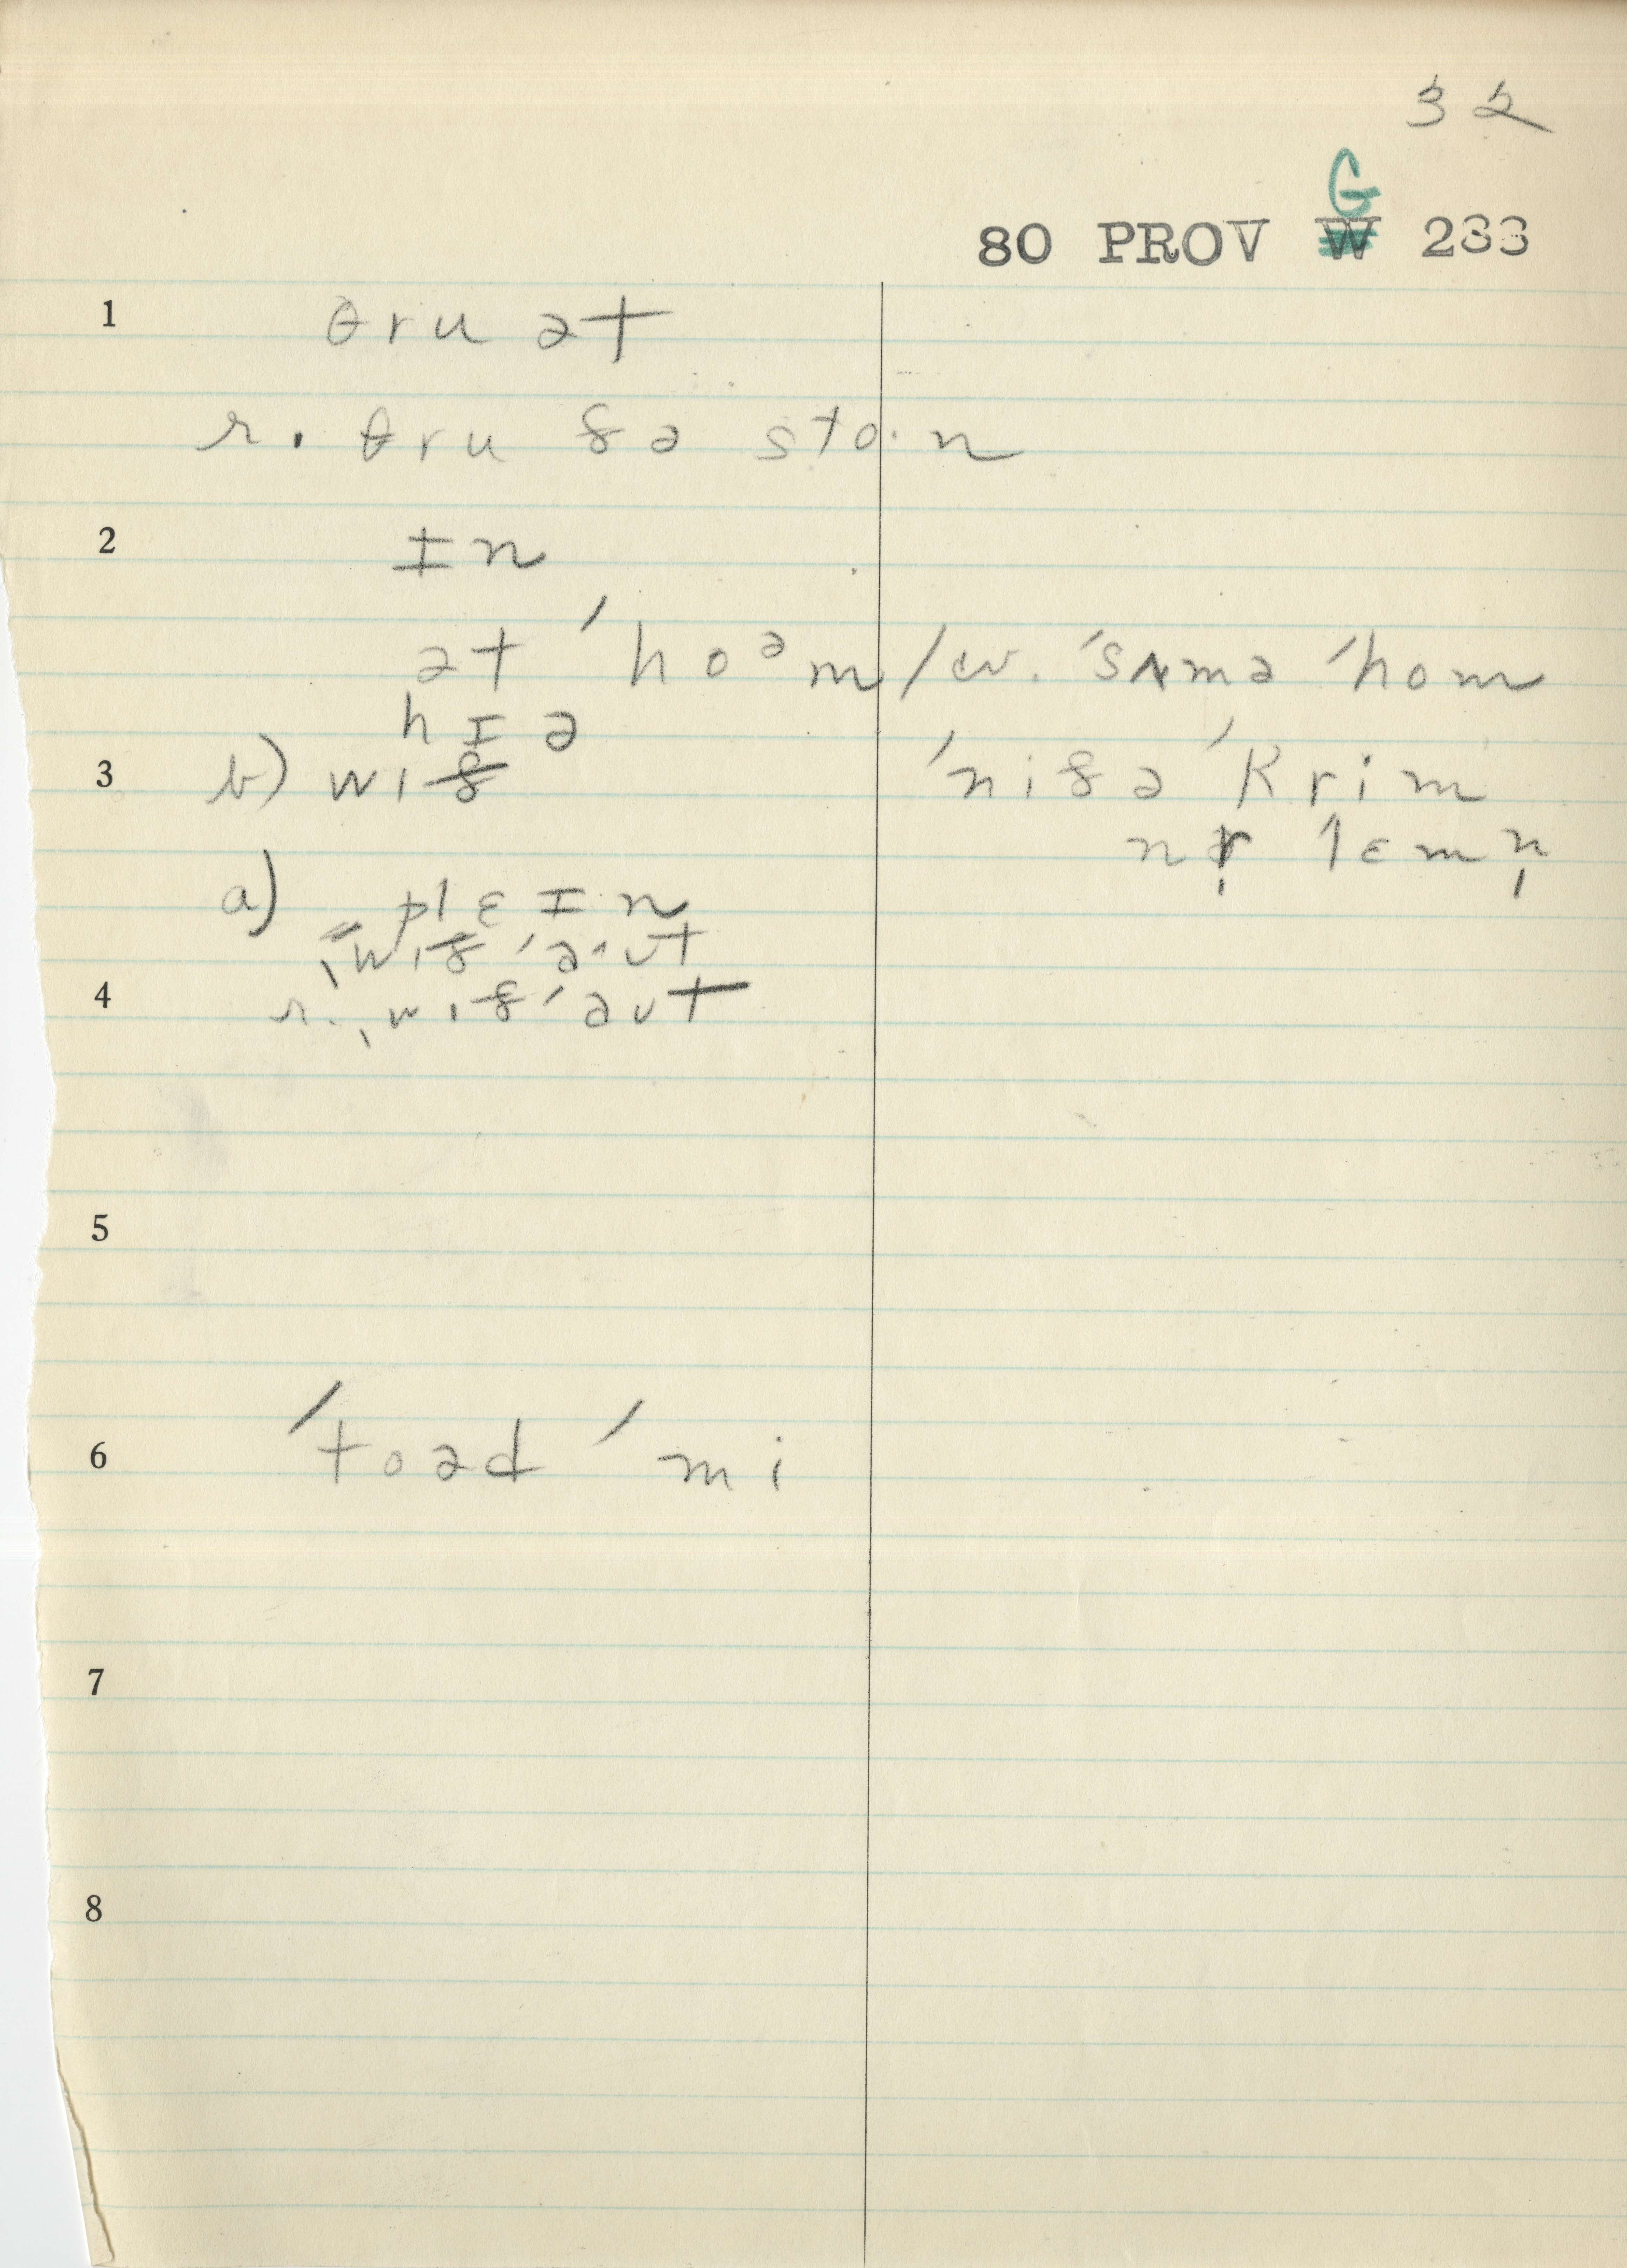 32
G
80 PROV W 233
1 θru ət
r. θru ðə sto·n
2 ɪn
ət ˈhoᵊm / w. ˈsʌmə ˈhom
hɪə
3 b) wið ˈniðə ˈkrim
nr̩ lɛmn̩
a) plɛɪn
ˌwið ˈə˄ʊt
4 r. ˌwið ˈəʊt
5
6 ˈtoəd ˈmi
7
8